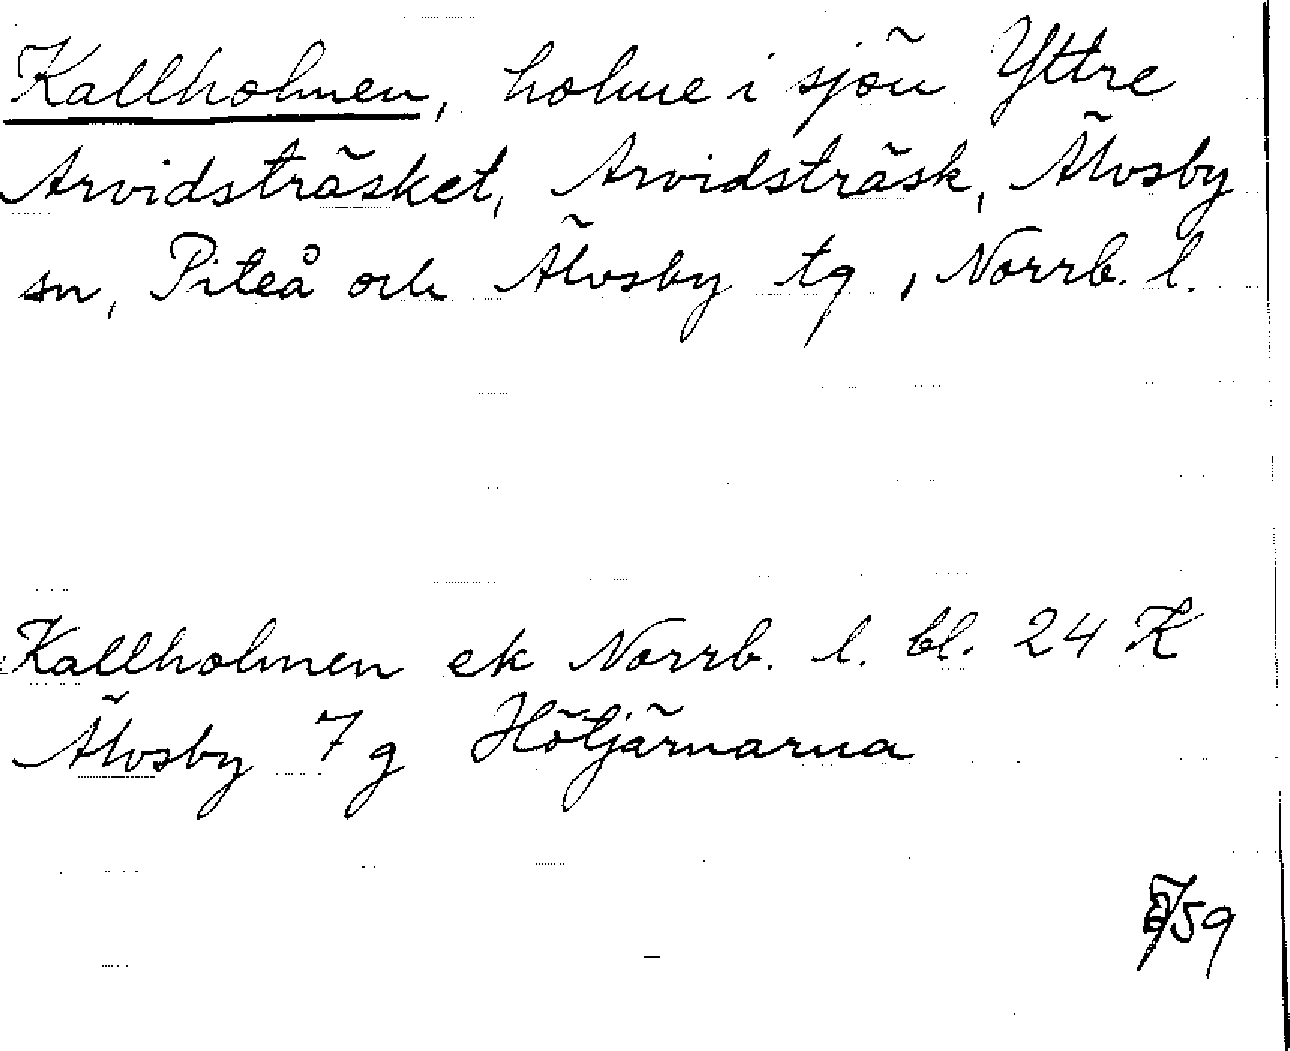 Kallholmen, holme i sjön Yttre
Arvidsträsket, Arvidsträsk, Älvsby
sn, Piteå och Älvsby tg, Norrb. l.
Kallholmen ek Norrb. l. bl. 24 K
Älvsby 7 g Hötjärnarna
/59